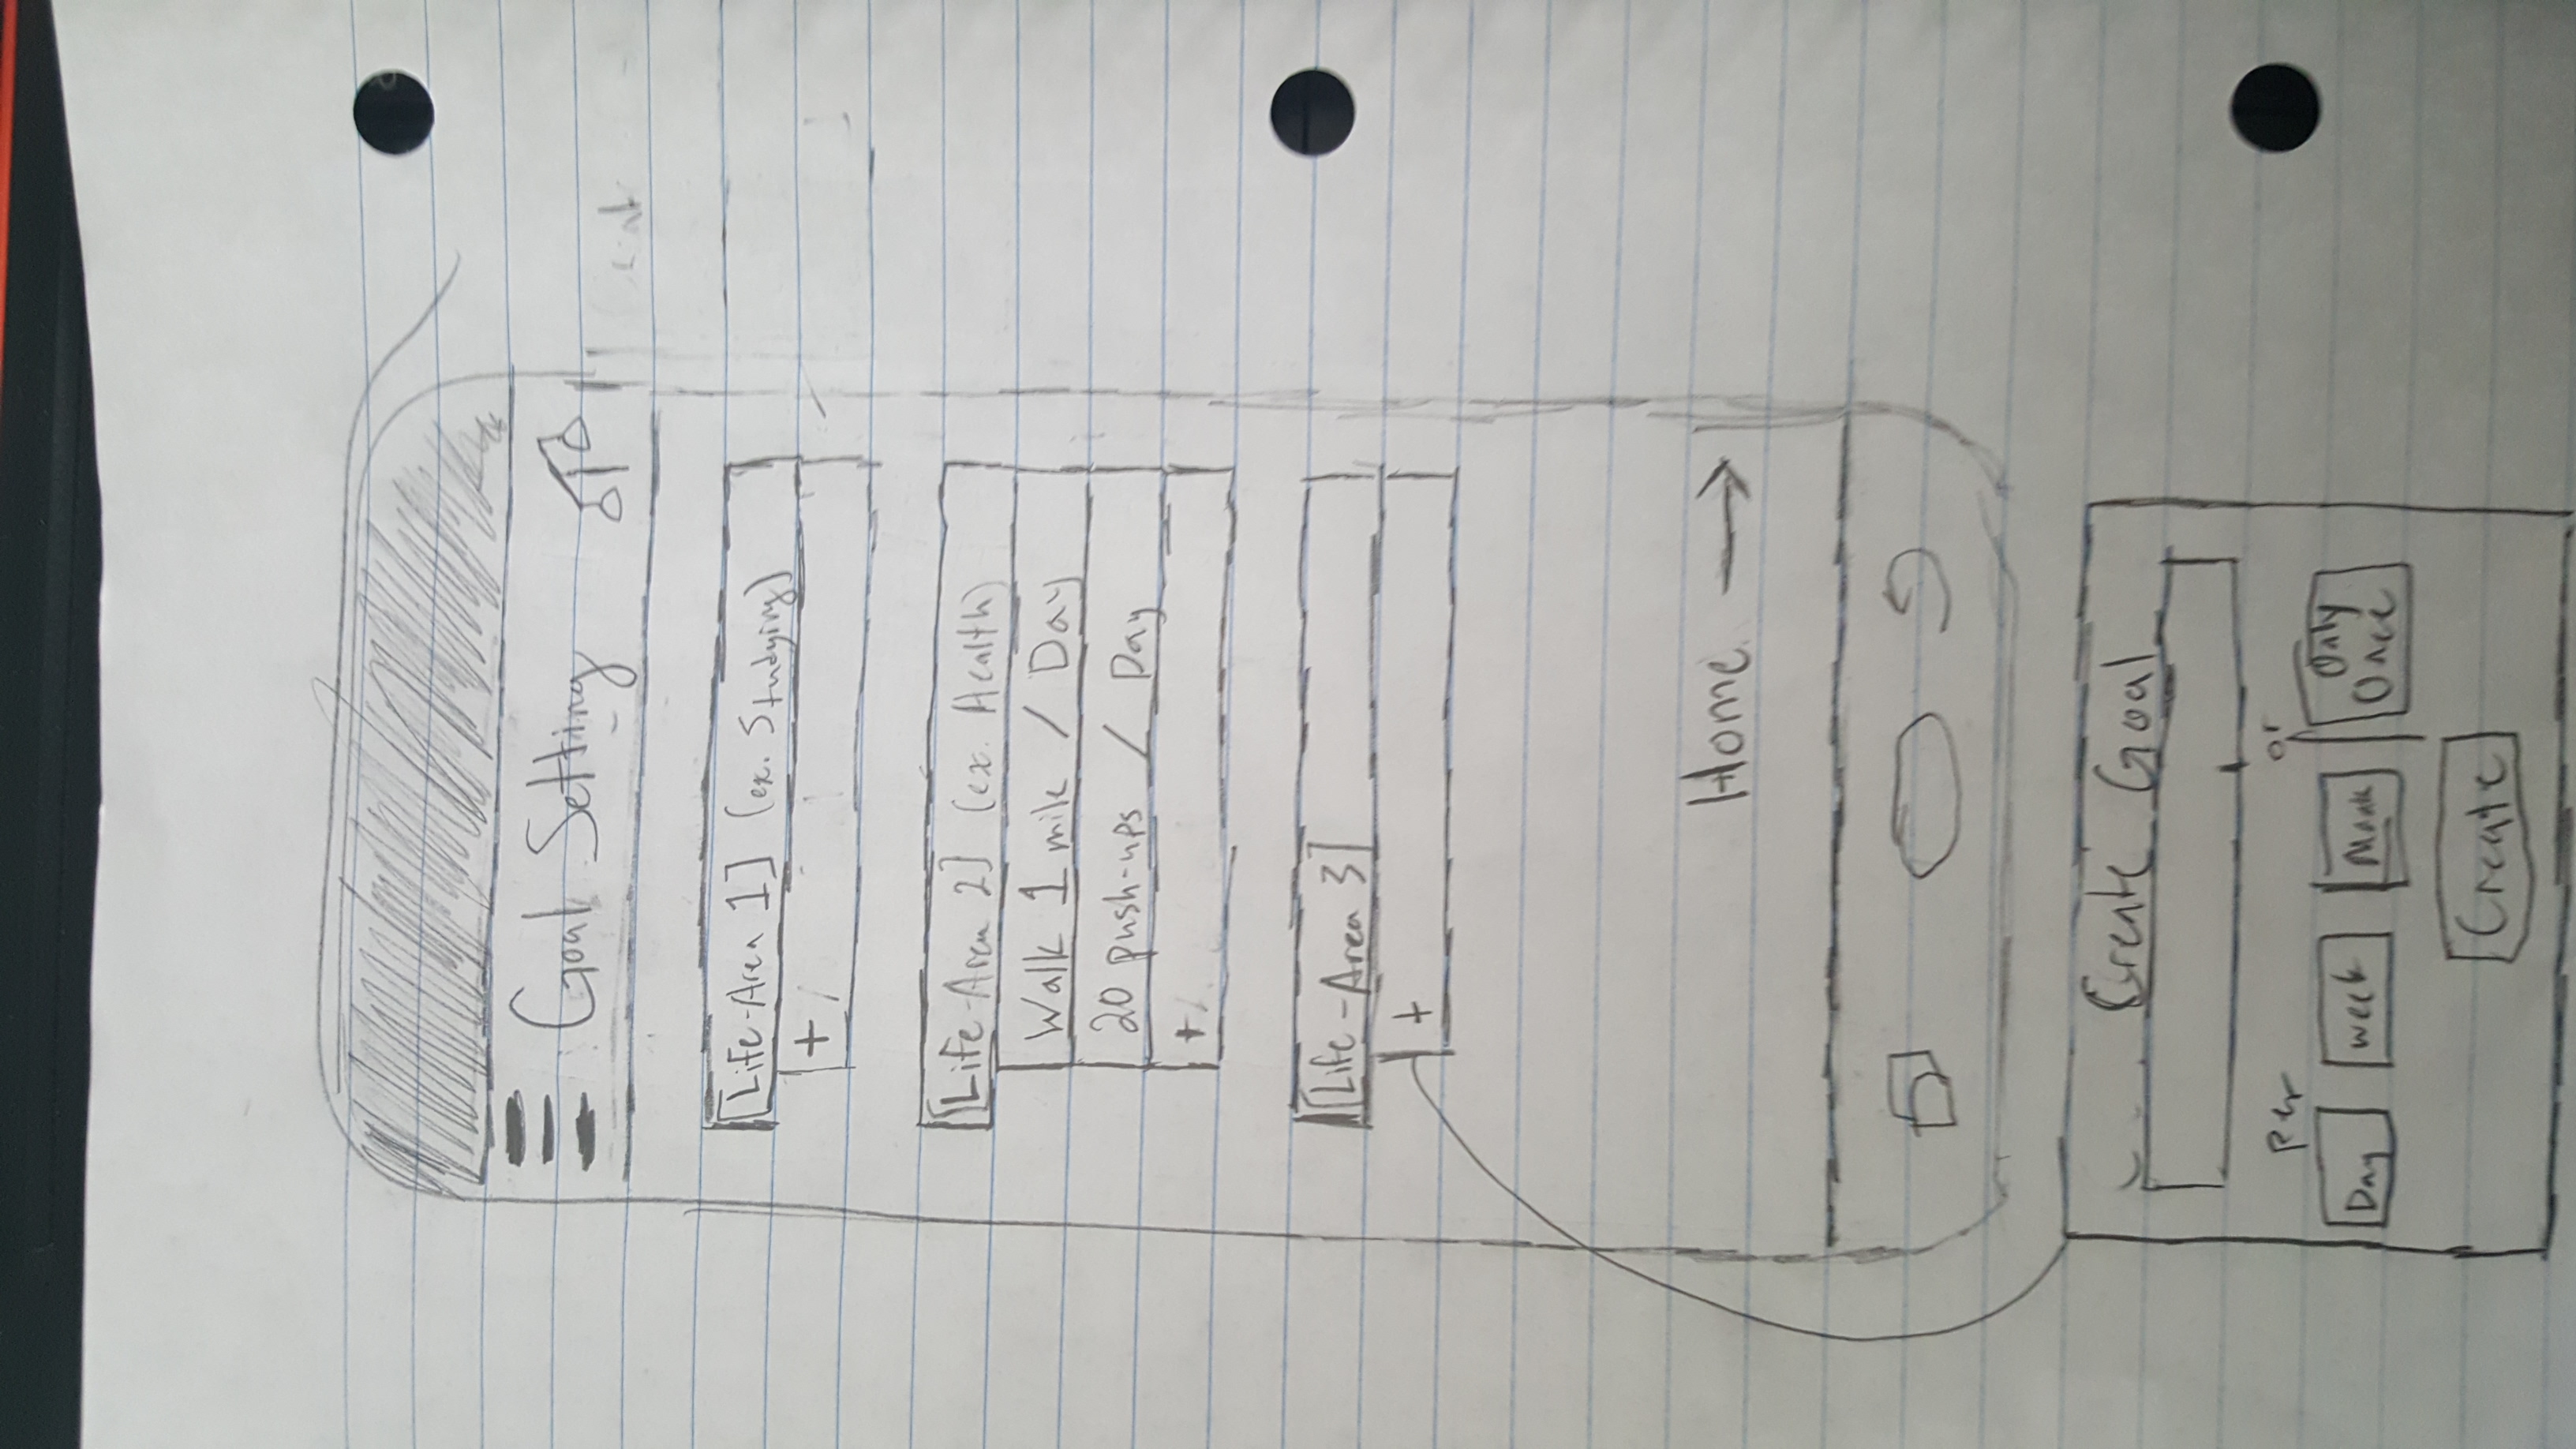 Goal Setting
[Life-Area 1] (ex. Studying)
+
[Life-Area 2] (ex. Health)
Walk 1 mile / Day
20 push-ups / Day
+
[Life-Area 3]
+
Home →
Create Goal
per or
Day Week Month Only
Once
Create